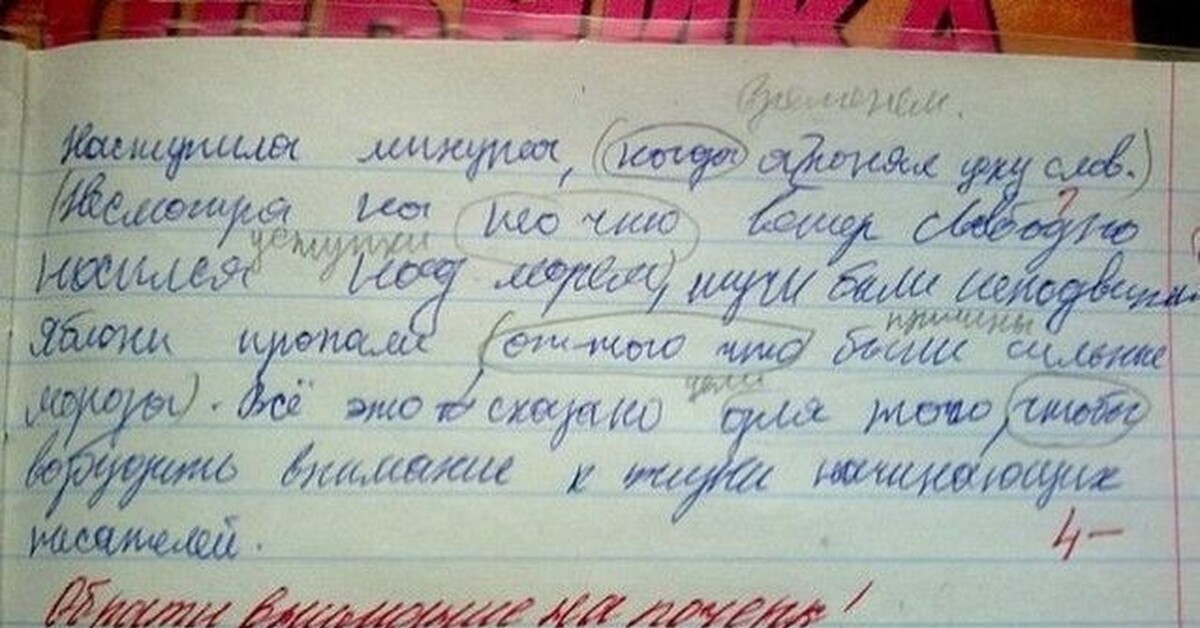 Временем.
Наступила минута, (когда я понял цену слов.)
(Несмотря на то что ветер свободно
уступки
носился над морем), тучи были неподвижны
причины
Яблони пропали (оттого что были сильные
цели
морозы). Всё это сказано для того, чтобы
возбудить внимание к жизни начинающих
писателей.
4-
Обрати внимание на почерк!